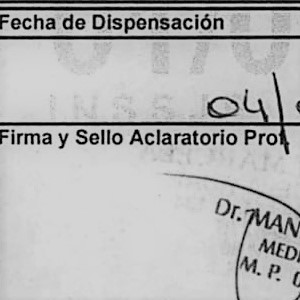 Fecha de Dispensación
04/
Firma y Sello Aclaratorio Prof
Dr. MAN
MEDI
M. P.